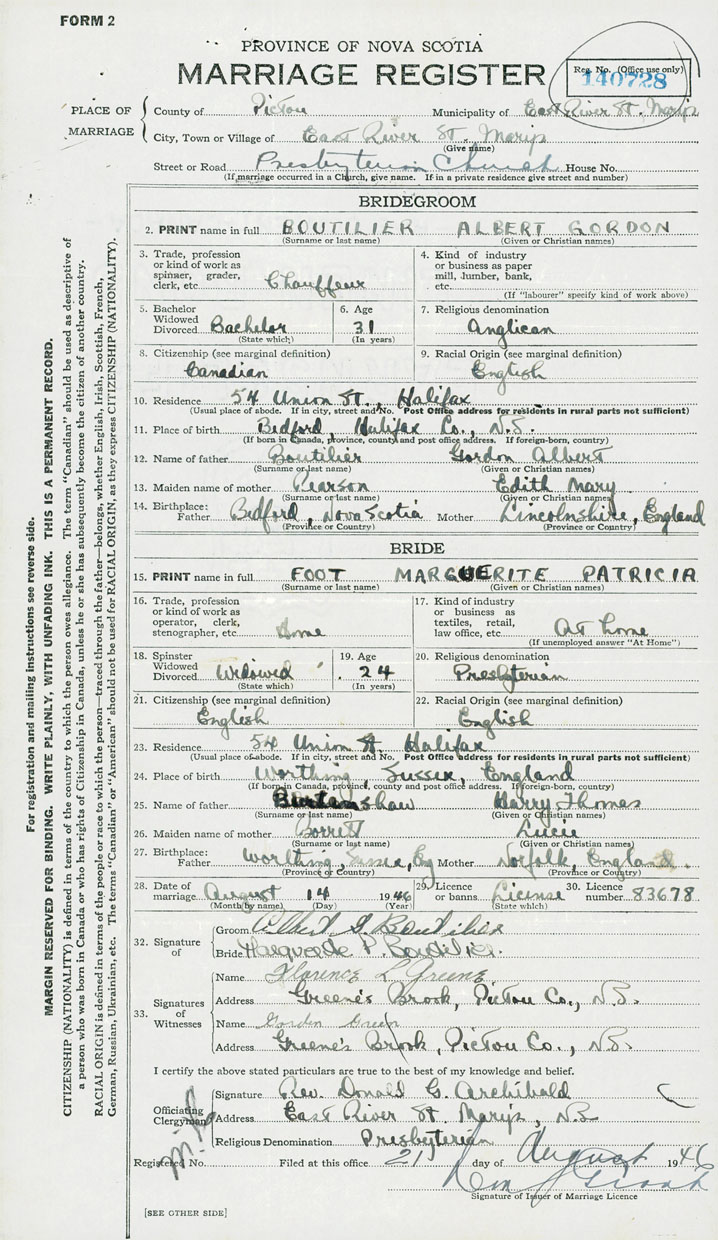 FORM 2
PROVINCE OF NOVA SCOTIA
MARRIAGE REGISTER
Reg. No. (Office use only)
140728
PLACE OF MARRIAGE
County of Pictou Municipality of East River St. Marys
City, Town or Village of East River St. Marys
(Give name)
Street or Road Presbyterian Church House No.
(If marriage occurred in a Church, give name. If in a private residence give street and number)
BRIDEGROOM
2. PRINT name in full BOUTILIER ALBERT GORDON
(Surname or last name) (Given or Christian names)
3. Trade, profession or kind of work as spinner, grader, clerk, etc. Chauffeur
4. Kind of industry or business as paper mill, lumber, bank, etc.
(If "labourer" specify kind of work above)
5. Bachelor Widowed Divorced Bachelor
(State which)
6. Age 31
(In years)
7. Religious denomination
Anglican
8. Citizenship (see marginal definition)
Canadian
9. Racial Origin (see marginal definition)
English
10. Residence 54 Union St., Halifax
(Usual place of abode. If in city, street and No. Post Office address for residents in rural parts not sufficient)
11. Place of birth Bedford, Halifax Co., N.S.
(If born in Canada, province, county and post office address. If foreign-born, country)
12. Name of father Boutilier Gordon Albert
(Surname or last name) (Given or Christian names)
13. Maiden name of mother Pearson Edith Mary
(Surname or last name) (Given or Christian names)
14. Birthplace: Father Bedford, Nova Scotia Mother Lincolnshire, England
(Province or Country) (Province or Country)
BRIDE
15. PRINT name in full FOOT MARGUERITE PATRICIA
(Surname or last name) (Given or Christian names)
16. Trade, profession or kind of work as operator, clerk, stenographer, etc. Home
17. Kind of industry or business as textiles, retail, law office, etc. At home
(If unemployed answer "At Home")
18. Spinster Widowed Divorced Widowed
(State which)
19. Age 24
(In years)
20. Religious denomination
Presbyterian
21. Citizenship (see marginal definition)
English
22. Racial Origin (see marginal definition)
English
23. Residence 54 Union St. Halifax
(Usual place of abode. If in city, street and No. Post Office address for residents in rural parts not sufficient)
24. Place of birth Worthing, Sussex, England
(If born in Canada, province, county and post office address. If foreign-born, country)
25. Name of father Burtenshaw Harry Thomas
(Surname or last name) (Given or Christian names)
26. Maiden name of mother Borrett Lucie
(Surname or last name) (Given or Christian names)
27. Birthplace: Father Worthing, Sussex, Eng Mother Norfolk, England.
(Province or Country) (Province or Country)
28. Date of marriage August 14 1946
(Month by name) (Day) (Year)
29. Licence or banns License
(State which)
30. Licence number 83678
32. Signature of
Groom Albert G Boutilier
Bride Marguerite P. Boutilier.
33. Signatures of Witnesses
Name Florence L Greene
Address Greene's Brook, Pictou Co., N.S.
Name Gordon Green
Address Greene's Brook, Pictou Co., N.S.
I certify the above stated particulars are true to the best of my knowledge and belief.
Officiating Clergyman
Signature Rev. Donald G. Archibald
Address East River St. Marys, NS
Religious Denomination Presbyterian
Registered No. Filed at this office 21 day of August 1946
Signature of Issuer of Marriage Licence
[SEE OTHER SIDE]
For registration and mailing instructions see reverse side.
MARGIN RESERVED FOR BINDING. WRITE PLAINLY, WITH UNFADING INK. THIS IS A PERMANENT RECORD.
CITIZENSHIP (NATIONALITY) is defined in terms of the country to which the person owes allegiance. The term "Canadian" should be used as descriptive of
a person who was born in Canada or who has rights of Citizenship in Canada, unless he or she has subsequently become the citizen of another country.
RACIAL ORIGIN is defined in terms of the people or race to which the person—traced through the father—belongs, whether English, Irish, Scottish, French,
German, Russian, Ukrainian, etc. The terms "Canadian" or "American" should not be used for RACIAL ORIGIN, as they express CITIZENSHIP (NATIONALITY).